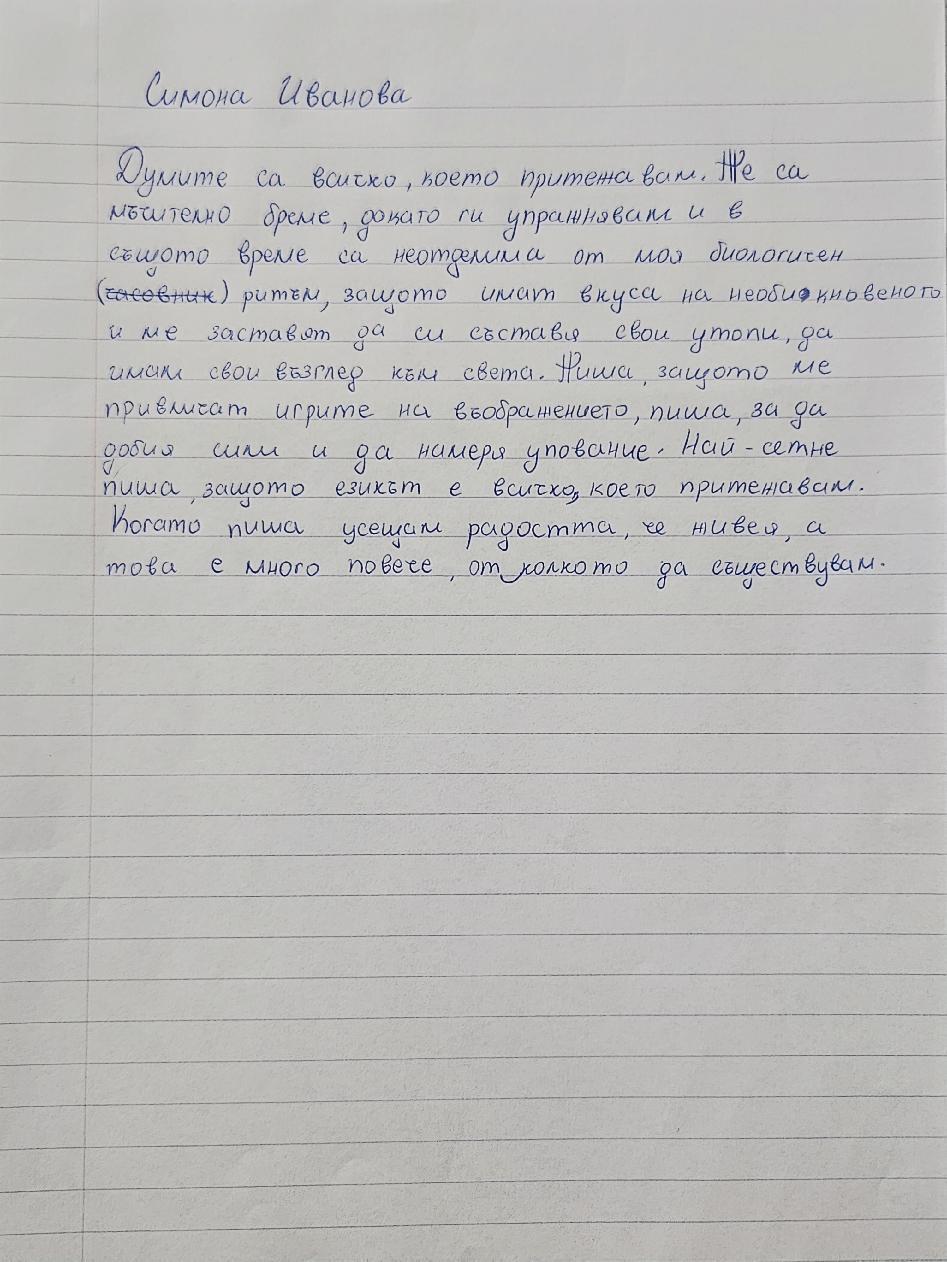 Симона Иванова
Думите са всичко, което притежавам. Те са
мъчително бреме, докато ги упражнявам и в
същото време са неотделима от моя биологичен
(часовник) ритъм, защото имат вкуса на необикновеното
и ме заставят да си съставя свои утопи, да
имам свои възглед към света. Пиша, защото ме
привличат игрите на въображението, пиша, за да
добия сили и да намеря упование. Най-сетне
пиша, защото езикът е всичко, което притежавам.
Когато пиша усещам радостта, че живея, а
това е много повече, от колкото да съществувам.